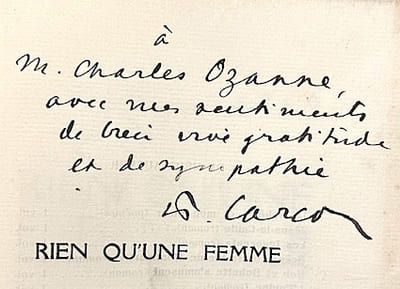 à
M. Charles Ozanne,
avec mes sentiments
de bien vive gratitude
et de sympathie
F. Carco
RIEN QU'UNE FEMME